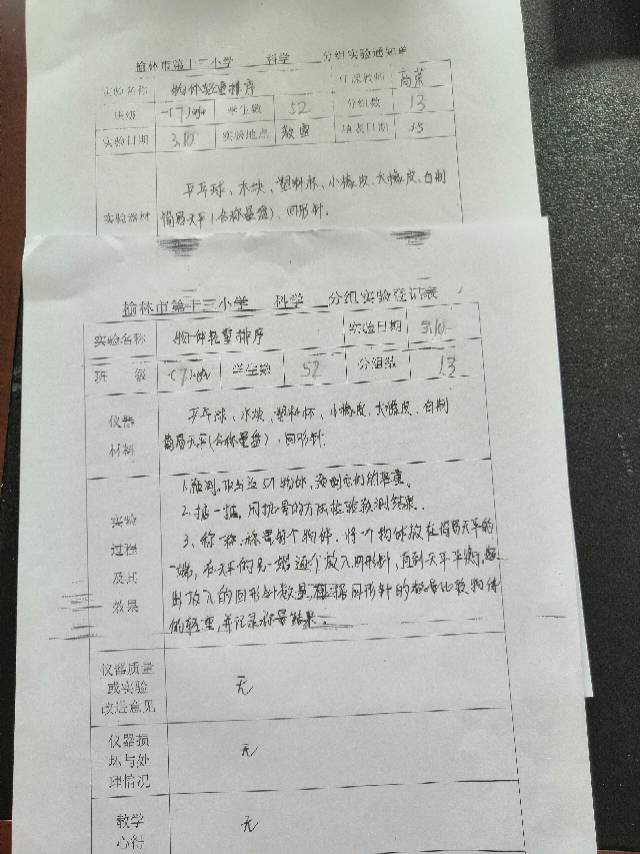 榆林市第十三小学 科学 分组实验通知单
实验名称 物体轻重排序 任课教师 高荣
班级 一(7) 学生数 52 分组数 13
实验日期 3.10 实验地点 教室 填表日期 3.5
乒乓球、木块、塑料杯、小橡皮、大橡皮、自制
实验器材 简易天平(含称量盘)、回形针.
榆林市第十三小学 科学 分组实验登记表
实验名称 物体轻重排序 实验日期 3.10
班级 一(7) 学生数 52 分组数 13
仪器 乒乓球、木块、塑料杯、小橡皮、大橡皮、自制
材料 简易天平(含称量盘)、回形针.
1.预测。 物体,预测它们的轻重。
2.掂一掂。用掂量的方法检验预测结果.
实验 3、称一称.称量每个物体.将 物体放在简易天平的
过程 一端,在天平的另一端逐个放入回形针,直到天平平衡,
及其 出放入的回形针数量,根据回形针的数量比较物体
效果 的轻重,并记录称量结果。
仪器质量
或实验 无
改进意见
仪器损
坏与处 无
理情况
教学 无
心得